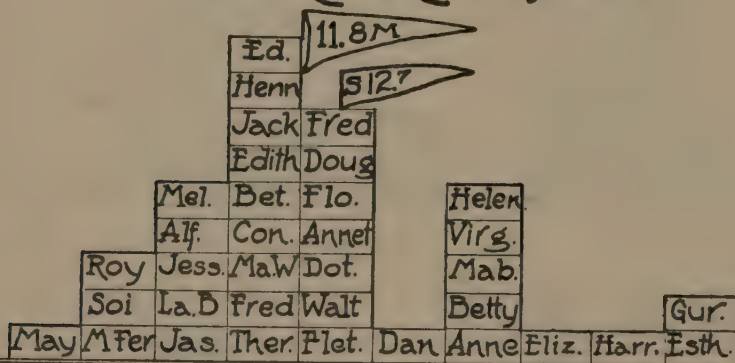 11.8M
Ed.
Henn S12.7
Jack Fred
Edith Doug
Mel. Bet. Flo. Helen
Alf. Con. Annet Virg.
Roy Jess. Ma.W Dot. Mab.
Soi La.B Fred Walt Betty Gur.
May M Fer Jas. Ther. Flet. Dan Anne Eliz. Harr. Esth.